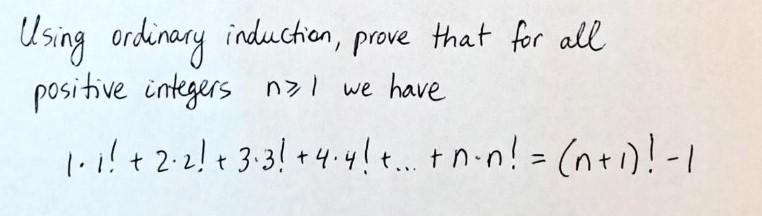 Using ordinary induction, prove that for all
positive integers n≥1 we have
1·1! + 2·2! + 3·3! + 4·4! + ... + n·n! = (n+1)! - 1